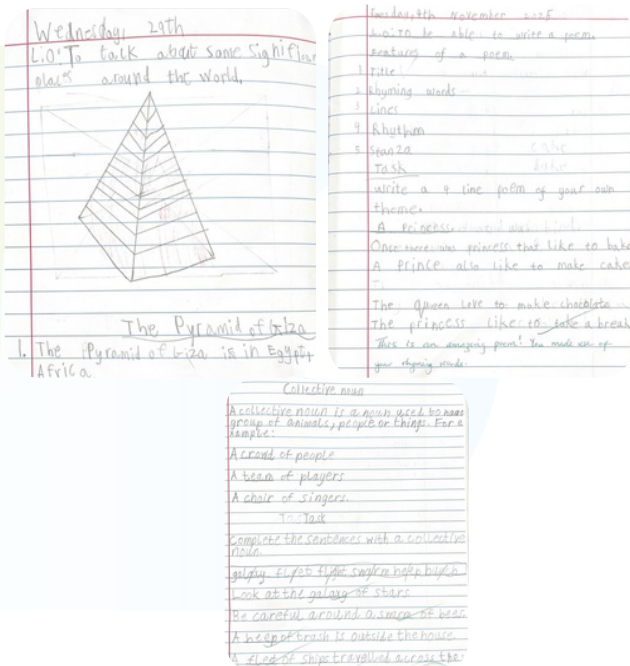 Wednesday, 29th
L.O: To talk about some signifi
places around the world.
The Pyramid of Giza
1. The Pyramid of Giza is in Egypt,
Africa
Tuesday, 4th November 2025
L.O: To be able to write a poem.
Features of a poem.
1 Title
2 Rhyming words
3 Lines
4 Rhythm
5 Stanza
cake
bake
Task
Write a 4 line poem of your own
theme.
A Princess
Once there was princess that like to bake
A Prince also like to make cake
The Queen Love to make chocolate
The princess like to take a break
This is an amazing poem! You made use of
your rhyming words.
Collective noun
A collective noun is a noun used to name
group of animals, people or things. For e
xample:
A crowd of people
A team of players
A choir of singers.
Task
Complete the sentences with a collective
noun.
galaxy, fleet flight swarm heep bunch
Look at the galaxy of stars
Be careful around a swarm of bees
A heep of trash is outside the house
A flee of ships travelled across the s